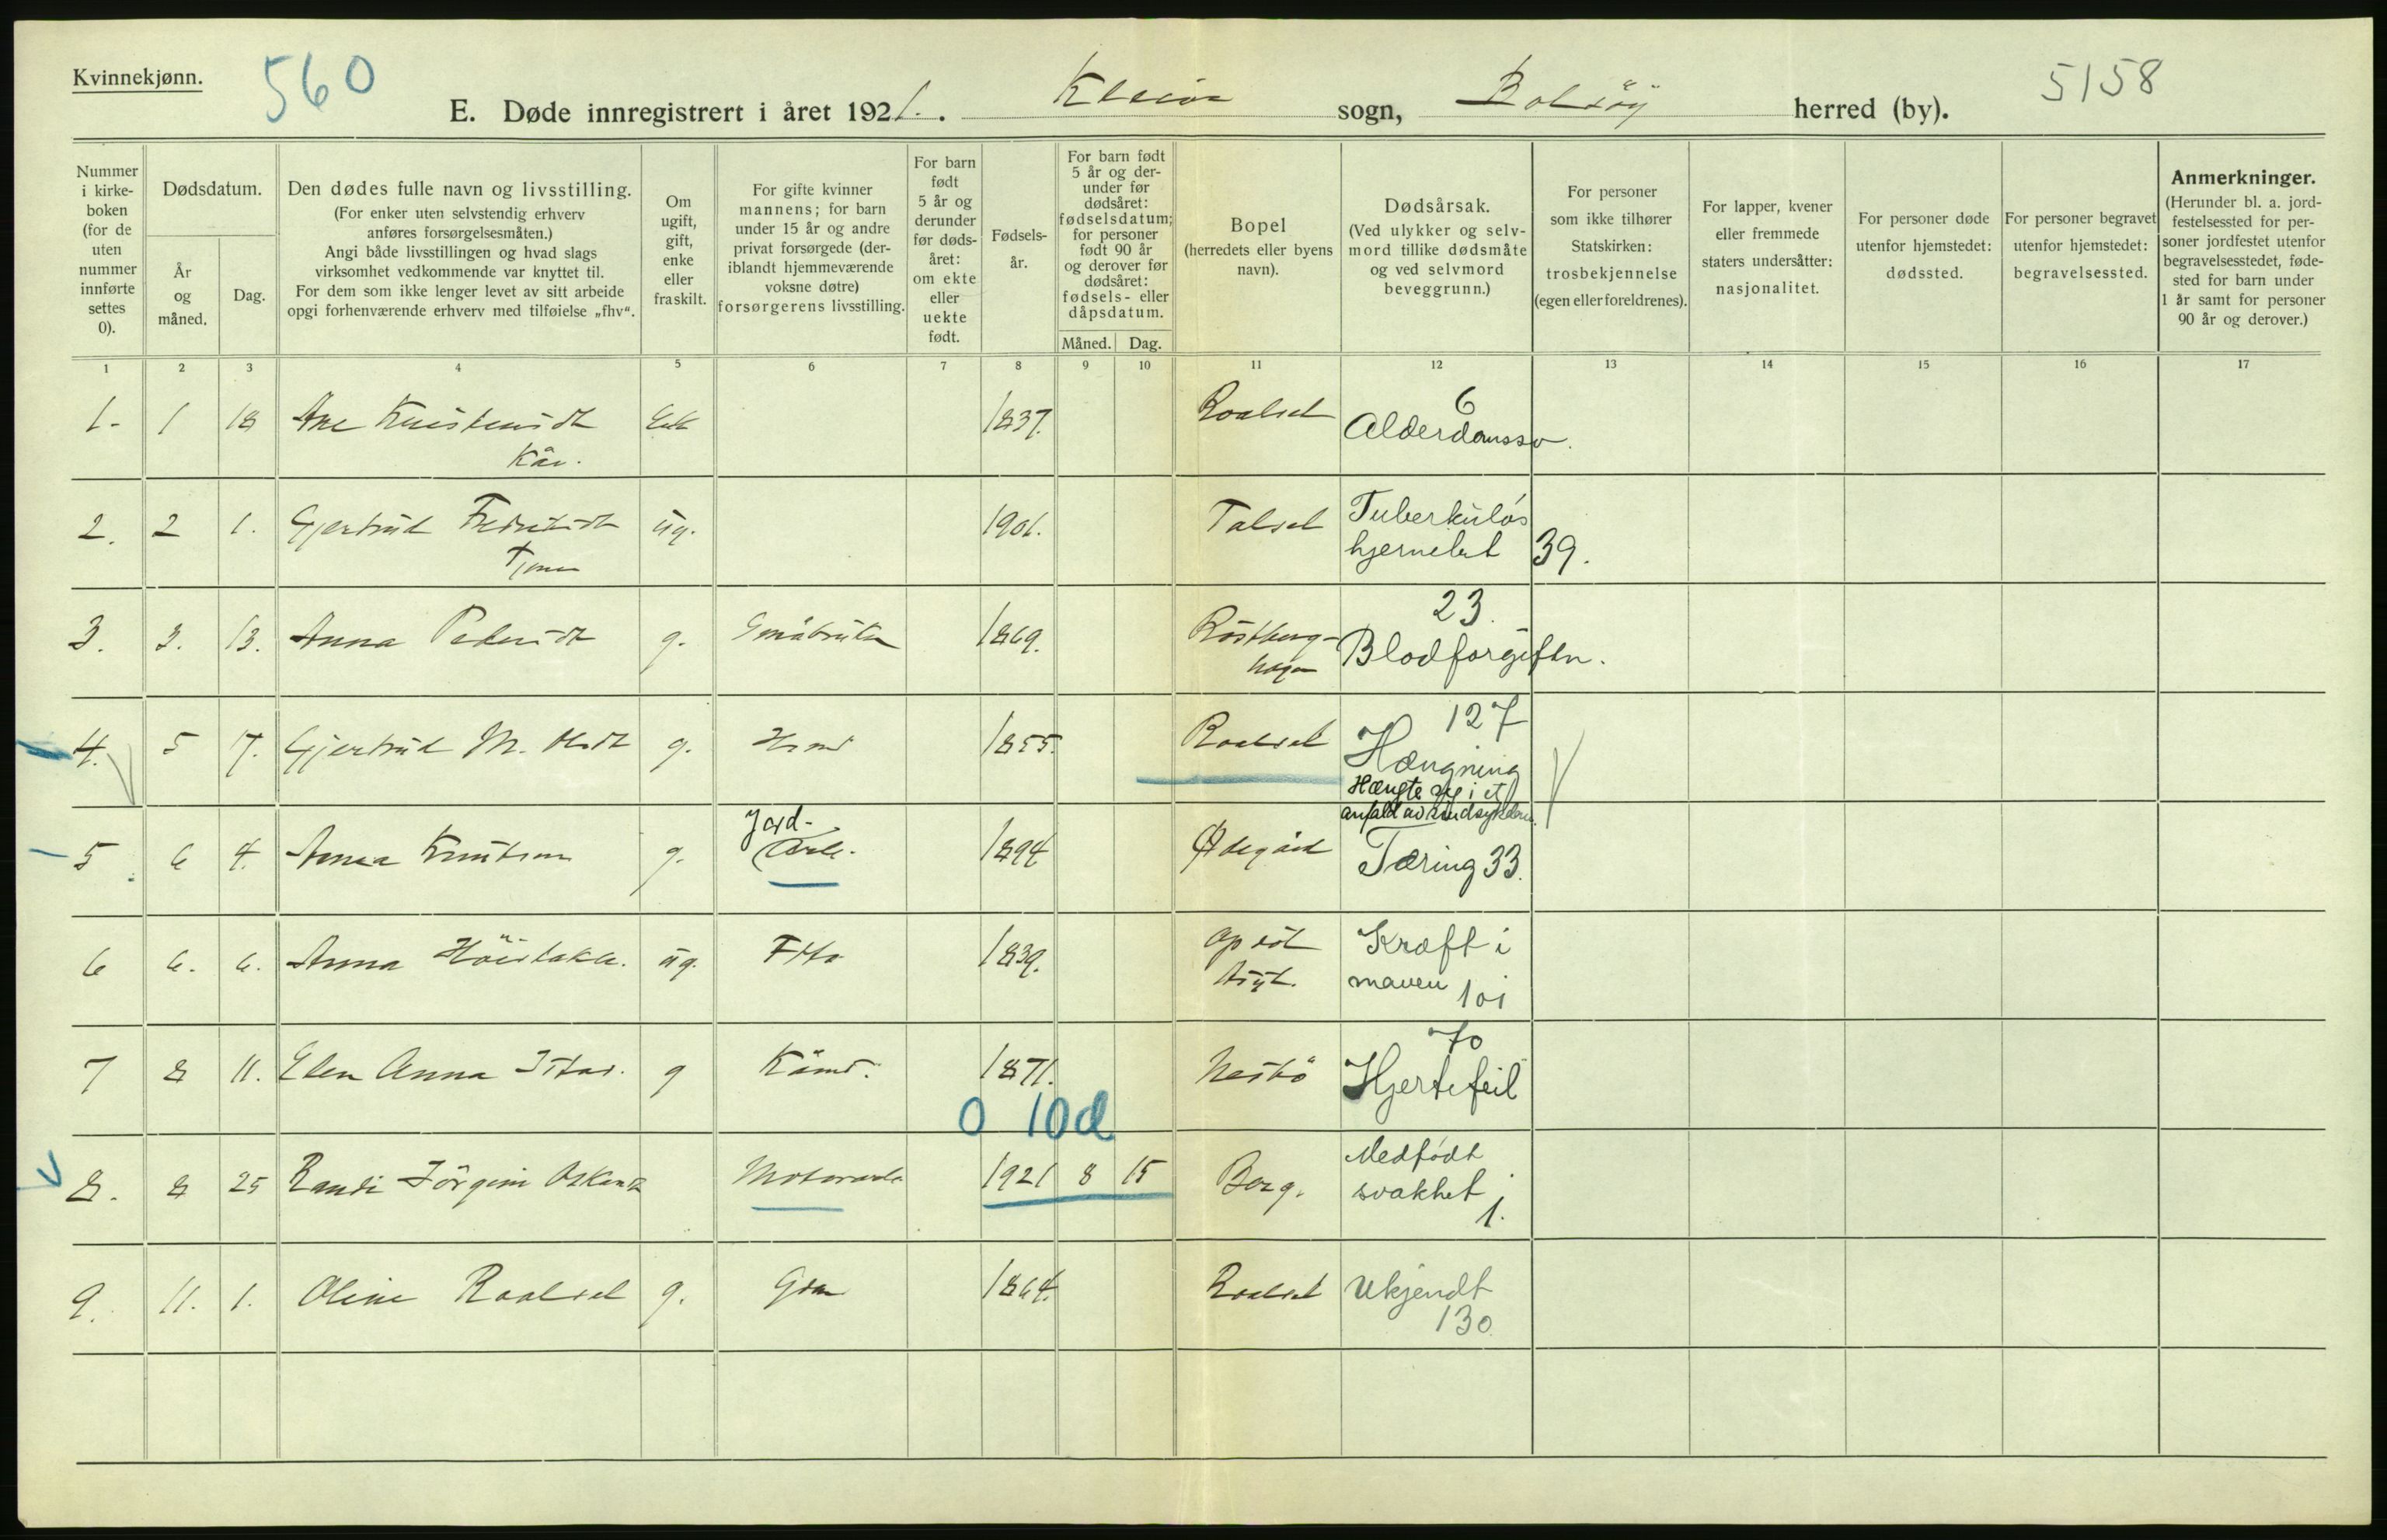 Kvinnekjønn.
560
5158
E. Døde innregistrert i året 1921. Kleive sogn, Bolsøy herred (by).
Nummer i kirke-boken (for de uten nummer innførte settes 0).
Dødsdatum.
År og måned.
Dag.
Den dødes fulle navn og livsstilling.
(For enker uten selvstendig erhverv anføres forsørgelsesmåten.)
Angi både livsstillingen og hvad slags virksomhet vedkommende var knyttet til.
For dem som ikke lenger levet av sitt arbeide opgi forhenværende erhverv med tilføielse „fhv“.
Om ugift, gift, enke eller fraskilt.
For gifte kvinner mannens; for barn under 15 år og andre privat forsørgede (der-iblandt hjemmeværende voksne døtre) forsørgerens livsstilling.
For barn født 5 år og derunder før døds-året: om ekte eller uekte født.
Fødsels-år.
For barn født 5 år og der-under før dødsåret: fødselsdatum; for personer født 90 år og derover før dødsåret: fødsels- eller dåpsdatum.
Måned. Dag.
Bopel (herredets eller byens navn).
Dødsårsak.
(Ved ulykker og selv-mord tillike dødsmåte og ved selvmord beveggrunn.)
For personer som ikke tilhører Statskirken: trosbekjennelse (egen eller foreldrenes).
For lapper, kvener eller fremmede staters undersåtter: nasjonalitet.
For personer døde utenfor hjemstedet: dødssted.
For personer begravet utenfor hjemstedet: begravelsessted.
Anmerkninger.
(Herunder bl. a. jord-festelsessted for per-soner jordfestet utenfor begravelsesstedet, føde-sted for barn under 1 år samt for personer 90 år og derover.)
1 2 3 4 5 6 7 8 9 10 11 12 13 14 15 16 17
1. 1 18 Ane Enk 1837. Roalset 6
Alderdomssv.
Kår.
2. 2 1. Gjertrud ug. 1901. Talset Tuberkuløs
hjernebet 39.
3. 3. 13. Anna Pedersdt g. Småbruker 1869. 23.
Blodforgiftn.
4. 5 17. Gjertrud M. Olsdt g. 1855. Roalset 127
Hængning
Hængte sig i et
anfald av sindsykdom.
Jord-
5. 6 4. Anna Knutsen g. Arb. 1894 Ødegård Tæring 33.
6 6. 6. Anna ug. 1839. Kræft i
maven 101
7 8 11. Elen Anna g 1871. Nesbö 70
Hjertefeil
0 10d
8. 8 25 Randi Jörgine 1921 8 15 Berg. Medfødt
svakhet 1.
9. 11. 1. Oline Roalset g. 1864. Roalset Ukjendt
130.